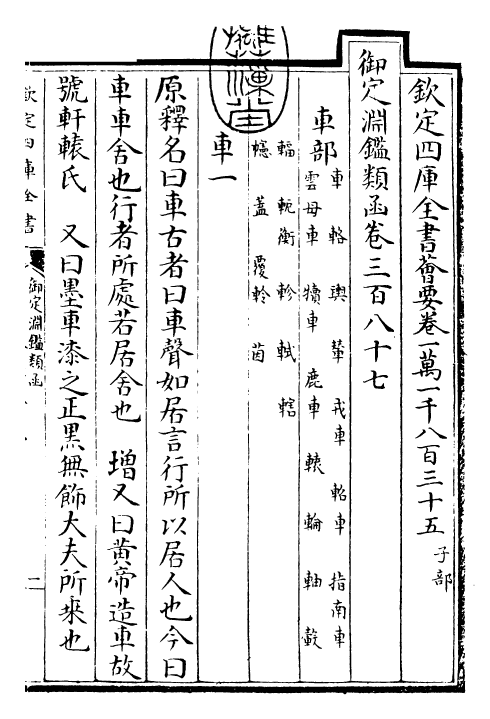 欽定四庫全書薈要卷一萬一千八百三十五 子部
御定淵鑑類函卷三百八十七
車部 車 輅 輿 輦 戎車 軺車 指南車
雲母車 犢車 鹿車 轅 輪 軸 轂
輻 軛衡 軫 軾 轄
幰 蓋 覆軨 茵
車一
原釋名曰車古者曰車聲如居言行所以居人也今曰
車車舍也行者所處若居舍也 增又曰黄帝造車故
號軒轅氏 又曰墨車漆之正黒無飾大夫所乘也
欽定四庫全書
御定淵鑑類函